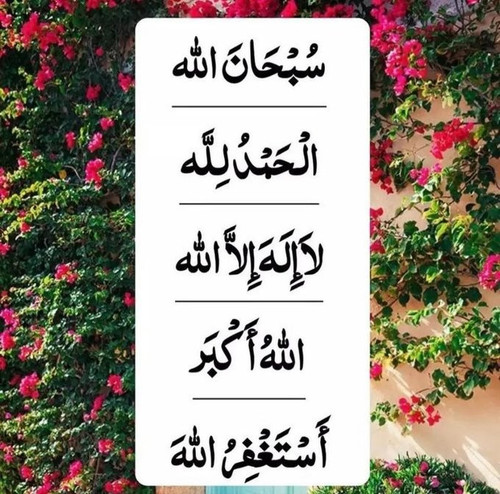 سُبْحَانَ الله
الْحَمْدُ لِلَّه
لَا إِلَهَ إِلَّا الله
اللهُ أَكْبَر
أَسْتَغْفِرُ اللهَ